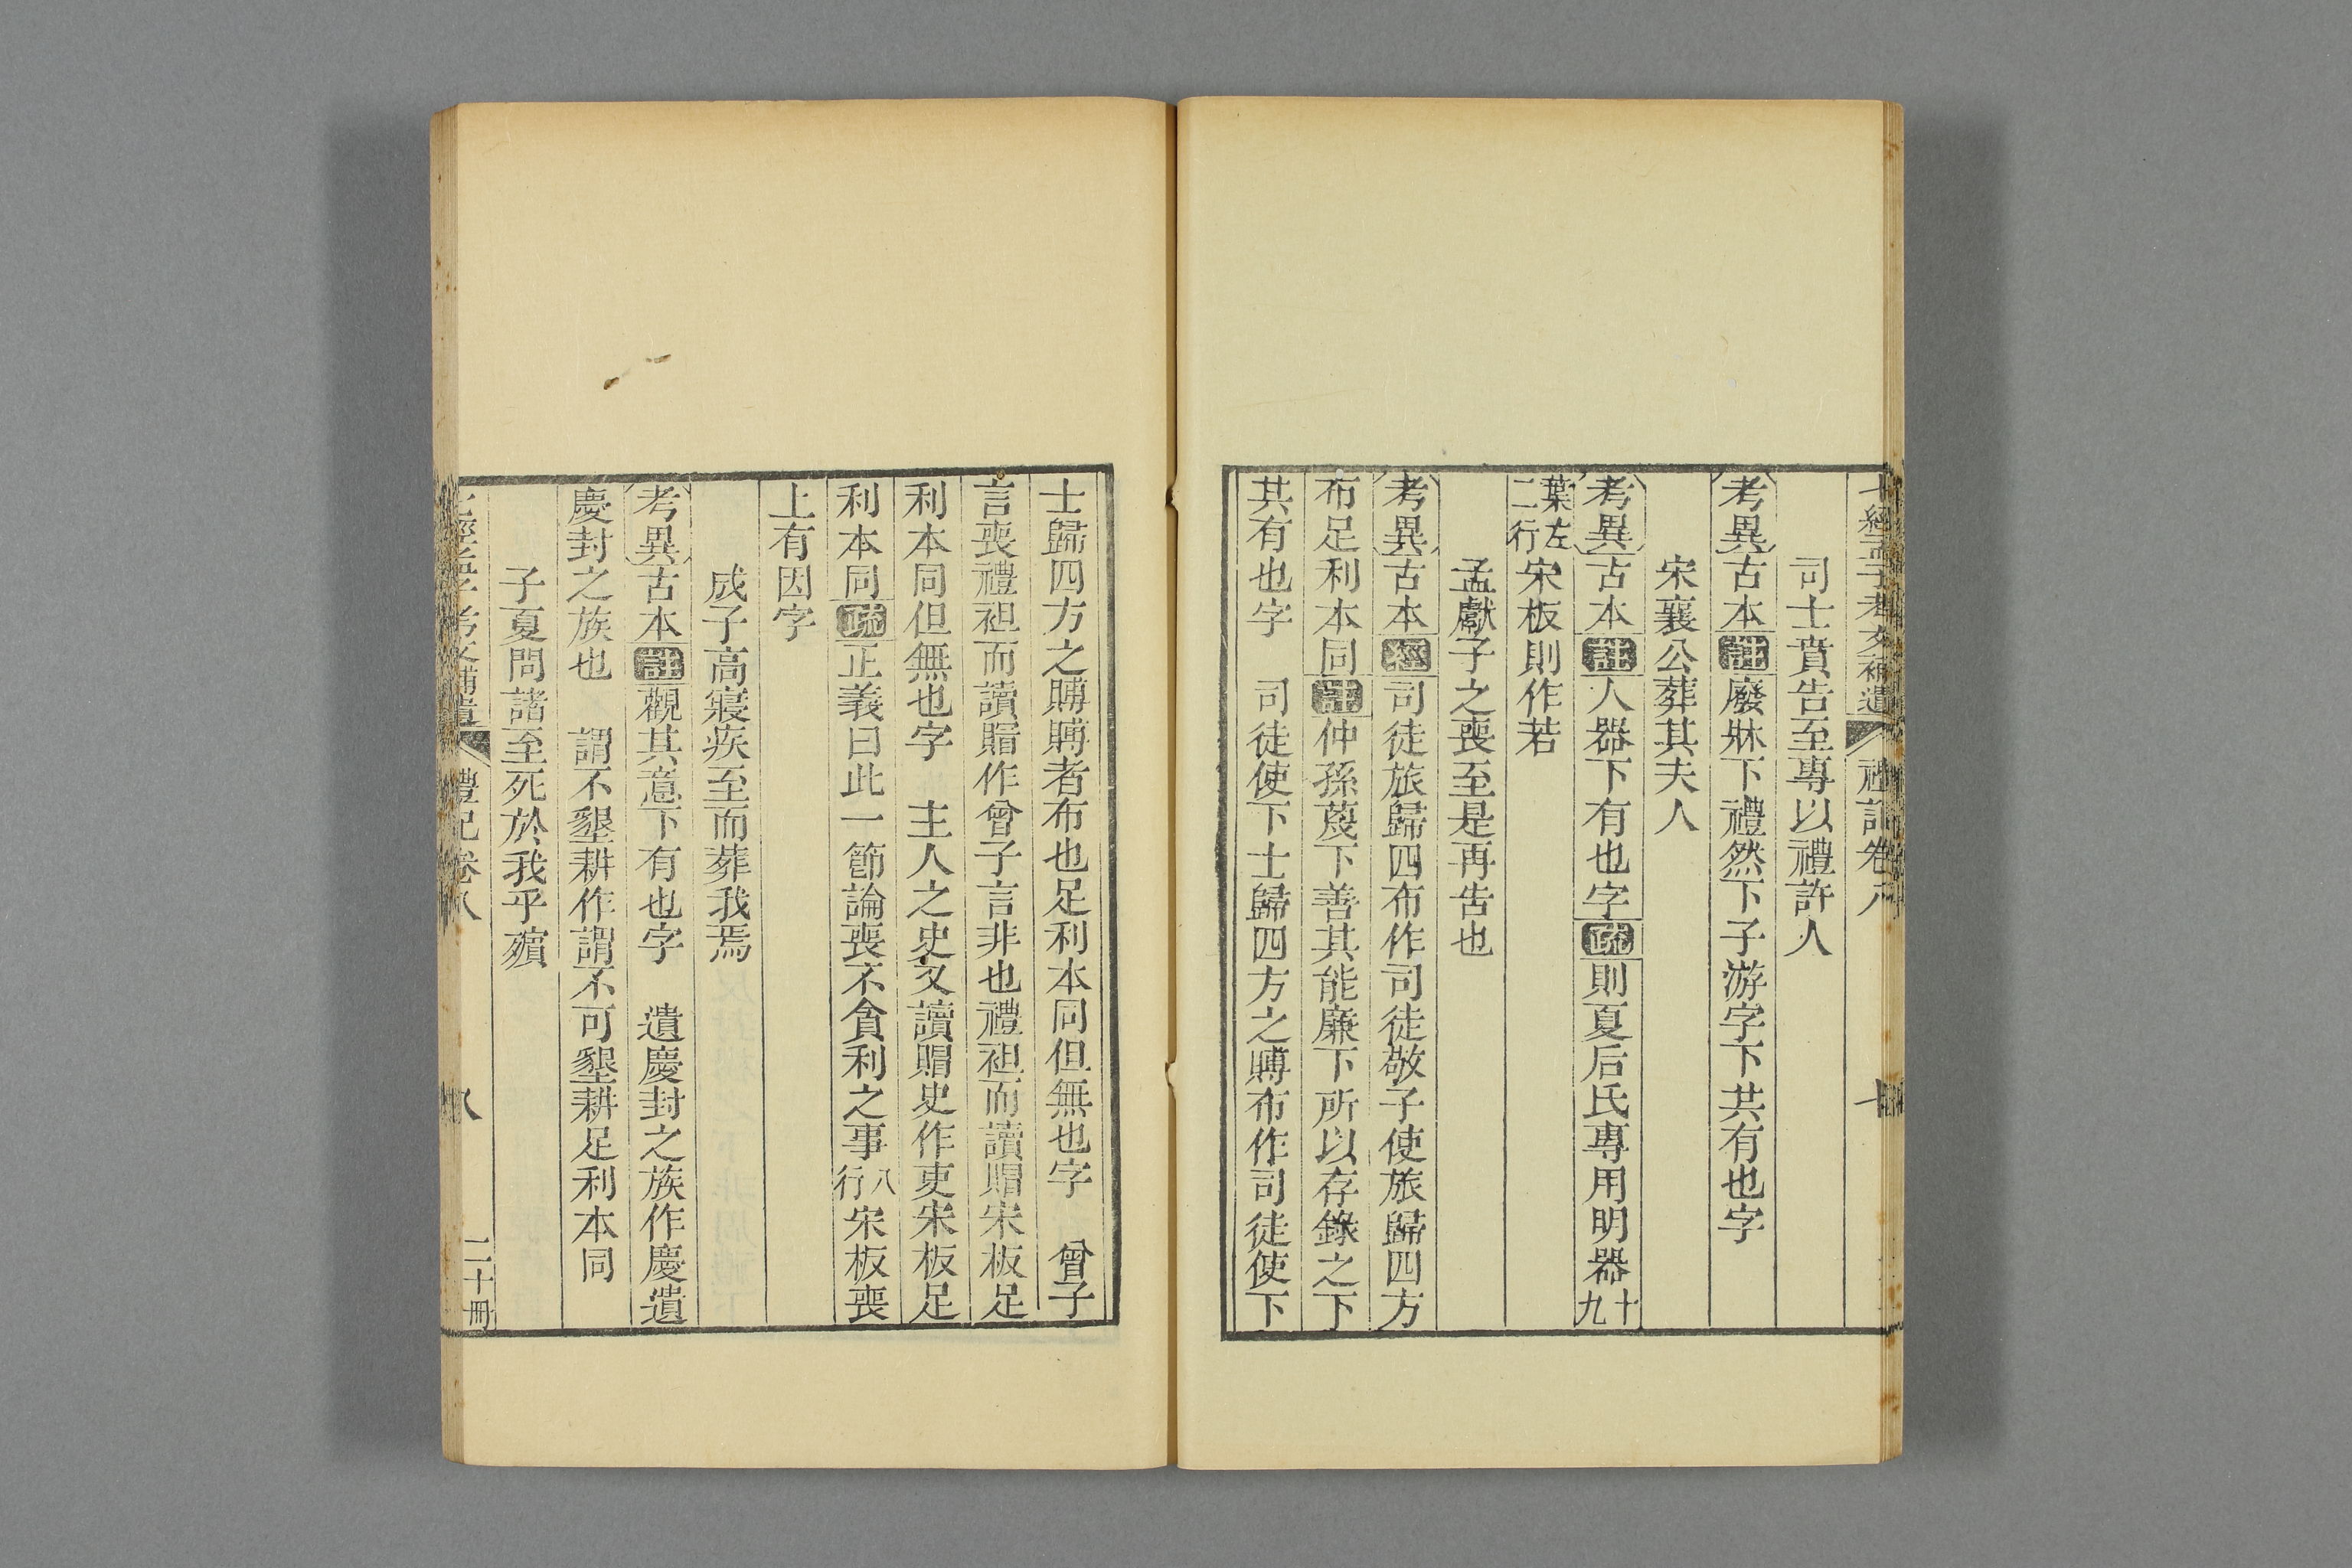 七經孟子考文補遺 禮記卷八 十
司士賁告至專以禮許人
考異古本註廢牀下禮然下子游字下共有也字
宋襄公葬其夫人
考異古本註人器下有也字疏則夏后氏專用明器十九
葉左二行宋板則作若
孟獻子之喪至是再告也
考異古本經司徒旅歸四布作司徒敬子使旅歸四方
布足利本同註仲孫蔑下善其能廉下所以存錄之下
其有也字 司徒使下士歸四方之賻布作司徒使下
士歸四方之賻賻者布也足利本同但無也字 曾子
言喪禮祖而讀賵作曾子言非也禮祖而讀賵宋板足
利本同但無也字 主人之史又讀賵史作吏宋板足
利本同疏正義曰此一節論喪不貪利之事八行宋板喪
上有因字
成子高寢疾至而葬我焉
考異古本註觀其意下有也字 遺慶封之族作慶遺
慶封之族也 謂不墾耕作謂不可墾耕足利本同
子夏問諸至死於我乎殯
七經孟子考文補遺 禮記卷八 八 二十冊